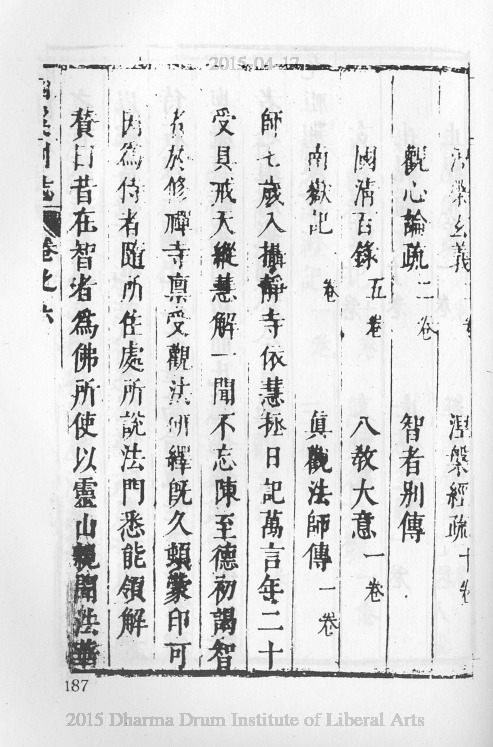 2015-04-17
涅槃玄義 卷 涅槃經疏十卷
觀心論疏二卷 智者別傳
國清百錄五卷 八教大意一卷
南嶽記卷 真觀法師傳一卷
師七歲入攝靜寺依慧拯日記萬言年二十
受具戒天縱慧解一聞不忘陳至德初謁智
者於修禪寺稟受觀法研繹既久頓蒙印可
因為侍者隨所住處所說法門悉能領解
贊曰昔在智者為佛所使以靈山親聞法華
志 卷之六
187
2015 Dharma Drum Institute of Liberal Arts